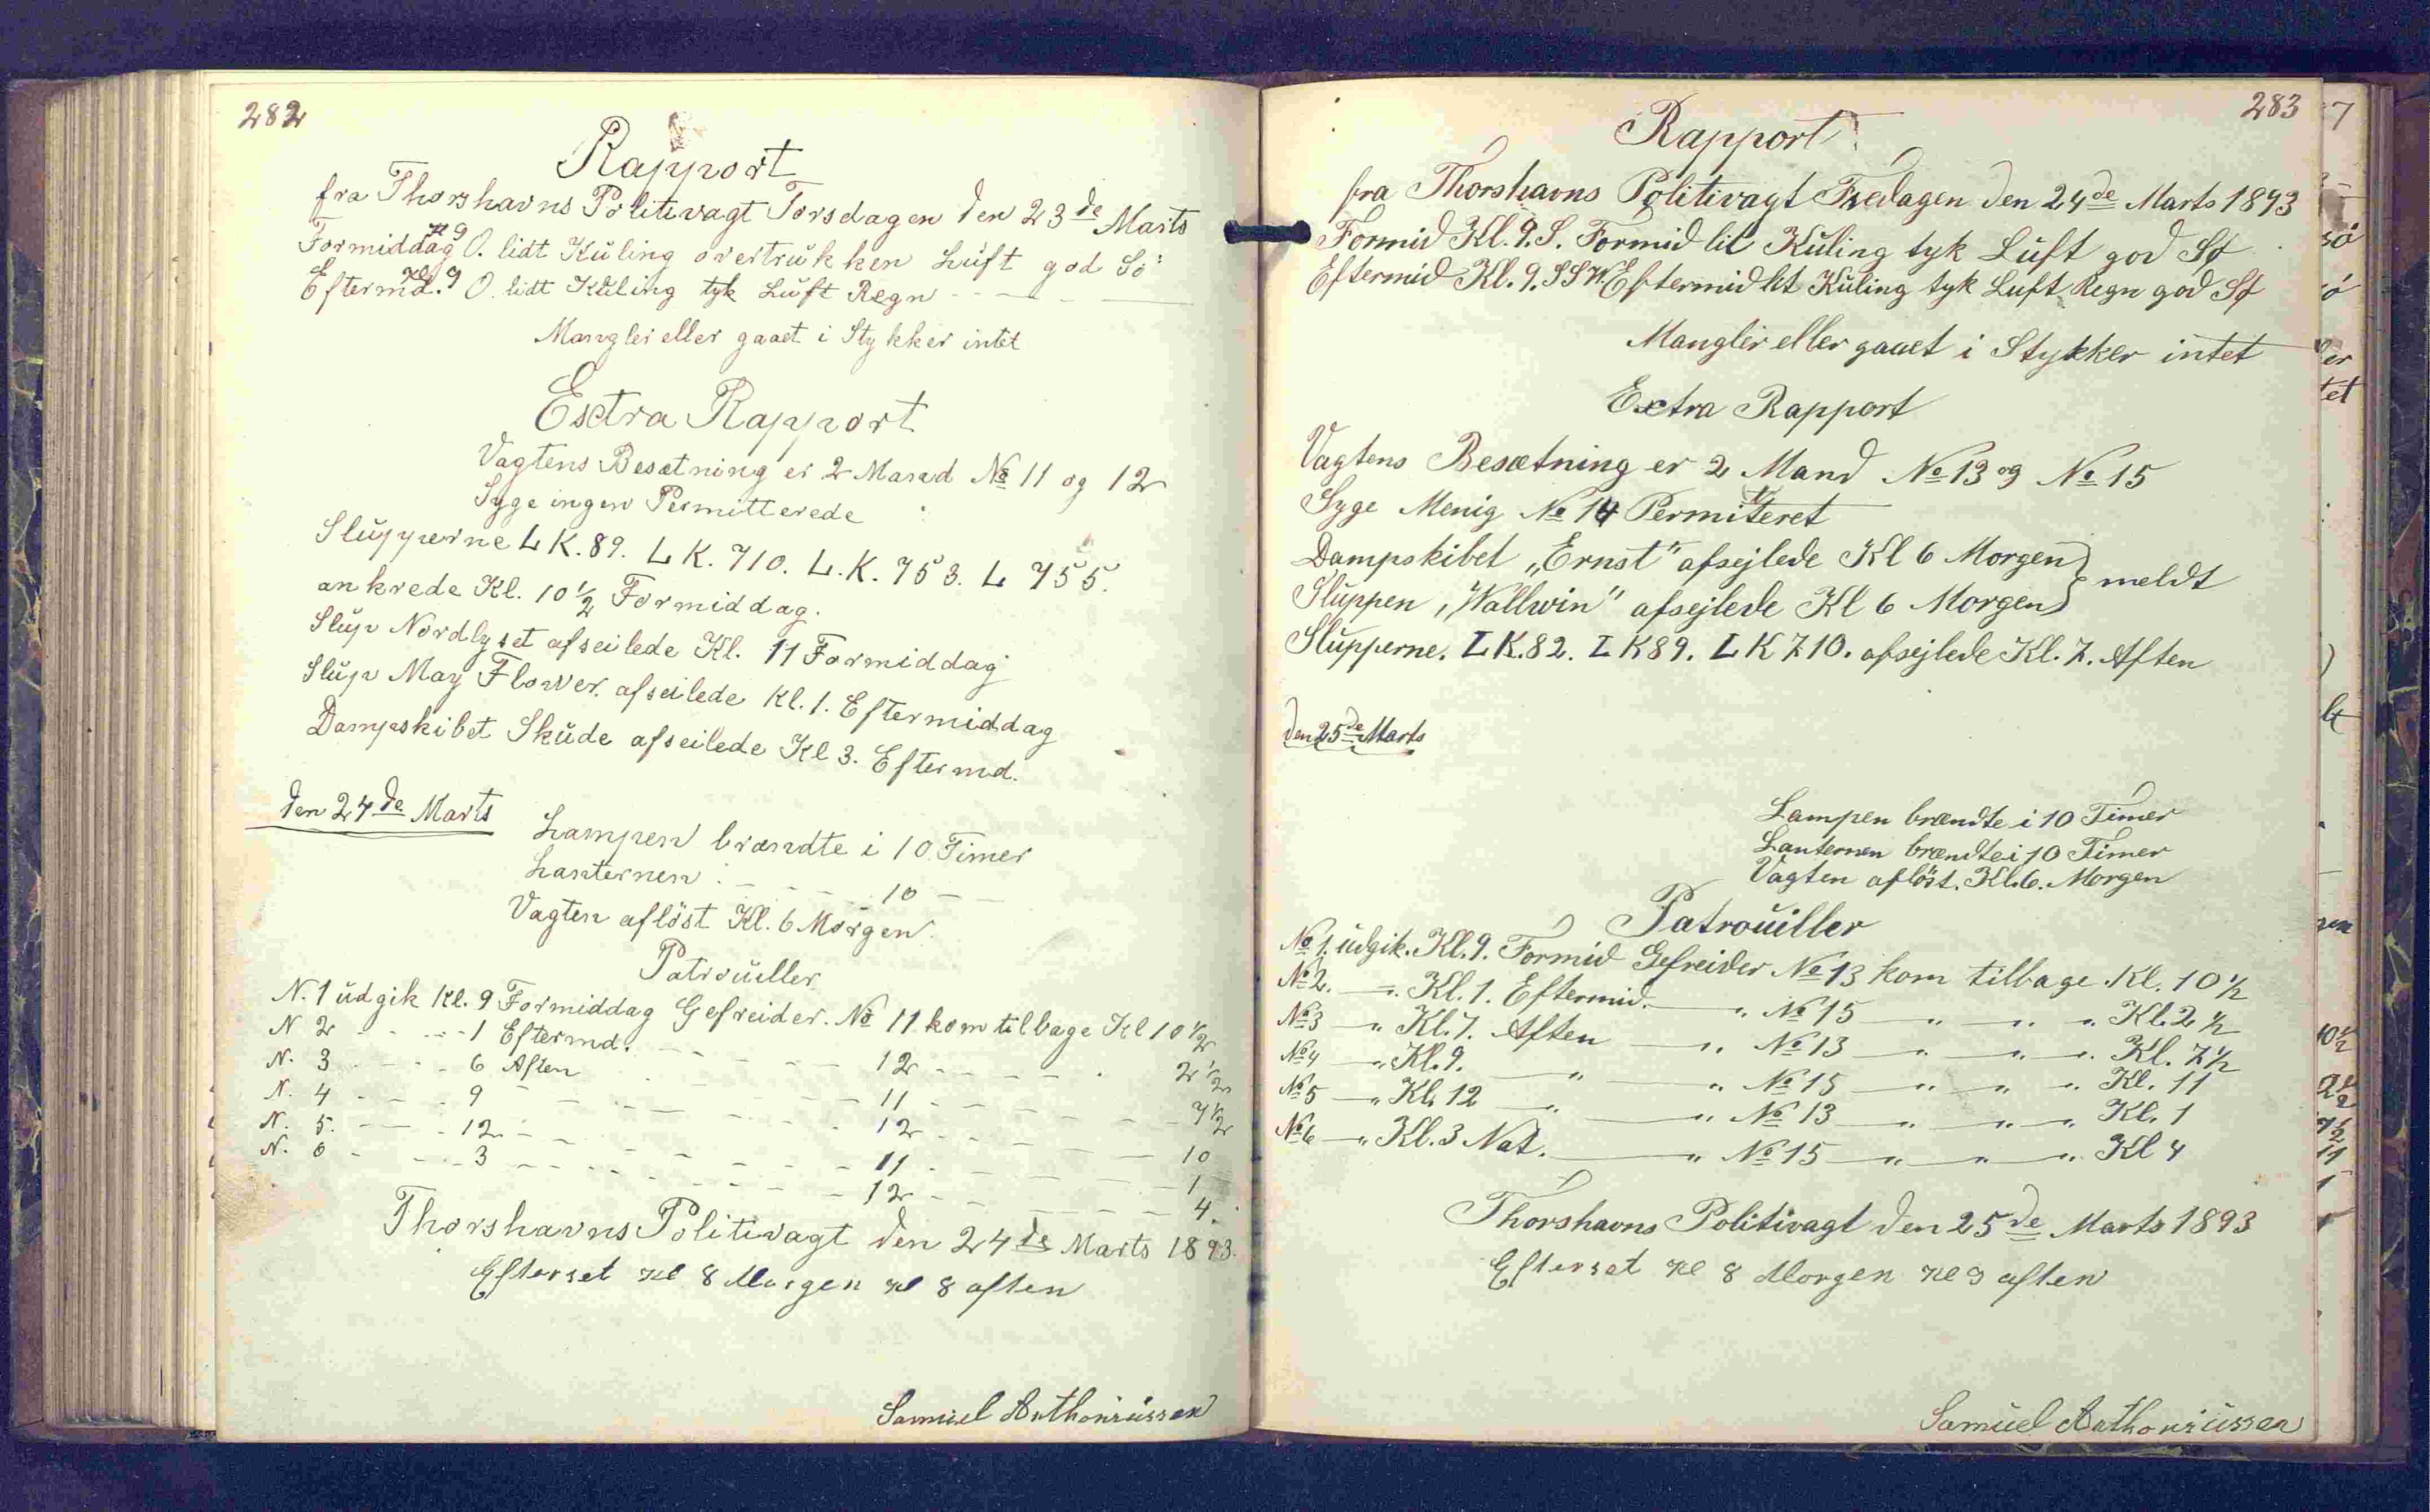 282
Rapport
fra Thorshavns Politivagt Torsdagen den 23de Marts
Formiddag Kl 9 O. lidt Kuling overtrukken Luft god Sö
Eftermd. Kl 9 O. lidt Kuling tyk Luft Regn - - — - —
Mangler eller gaaet i Stykker intet
Extra Rapport
Vagtens Besætning er 2 Mand No 11 og 12
Syge ingen Permitterede
Slupperne L K. 89. L K. 710. L. K. 753. L 755.
ankrede Kl. 10 1/2 Formiddag.
Slup Nordlyset afseilede Kl. 11 Formiddag
Slup May Flower. afseilede Kl. 1. Eftermiddag
Dampskibet Skude afseilede Kl 3. Eftermd.
den 24de Marts
Lampen brændte i 10 Timer
Lanternen - - - - 10 —
Vagten aflöst Kl. 6 Morgen.
Patrouiller
N. 1 udgik Kl. 9 Formiddag Gefreider. No 11 kom tilbage Kl 10 1/2
N 2 - - - - 1 Eftermd. - - - - 12 - - - - 2 1/2
N. 3 - - - 6 Aften - - - - 11 - - - - 7 1/2
N. 4 - - - 9 - - - - 12 - - - - 10
N. 5. - - - 12 - - - - 11 - - - - 1
N. 6 - - - 3 - - - - 12 - - - - 4.
Thorshavns Politivagt den 24de Marts 1893.
Efterset Kl 8 Morgen Kl 8 aften
Samuel Anthoniussen
283
Rapport
fra Thorshavns Politivagt Fredagen den 24de Marts 1893
Formid Kl. 9. S. Formid lit Kuling tyk Luft god Sø
Eftermid Kl. 9. SSW. Eftermid lit Kuling tyk Luft Regn god Sø
Mangler eller gaaet i Stykker intet
Extra Rapport
Vagtens Besætning er 2 Mand No 13 og No 15
Syge Menig No 14 Permiteret
Dampskibet „Ernst" afsejlede Kl 6 Morgen } meldt
Sluppen „Wallwin" afsejlede Kl 6 Morgen
Slupperne. L K. 82. L K 89. L K 710. afsejlede Kl. 7. Aften
den 25de Marts
Lampen brændte i 10 Timer
Lanternen brændte i 10 Timer
Vagten aflöst. Kl. 6. Morgen
Patrouiller
No 1. udgik. Kl. 9. Formid Gefreider No 13 kom tilbage Kl. 10 1/2
No 2. — " Kl. 1. Eftermid. — " No 15 — " — " — " Kl. 2 1/2
No 3 — " Kl. 7. Aften — " No 13 — " — " — " Kl. 7 1/2
No 4 — " Kl. 9. — " — " No 15 — " — " — " Kl. 11
No 5 — " Kl. 12 — " — " No 13 — " — " — " Kl. 1
No 6 — " Kl. 3 Nat. — " No 15 — " — " — " Kl 4
Thorshavns Politivagt den 25de Marts 1893
Efterset Kl 8 Morgen Kl 9 aften
Samuel Anthoniussen